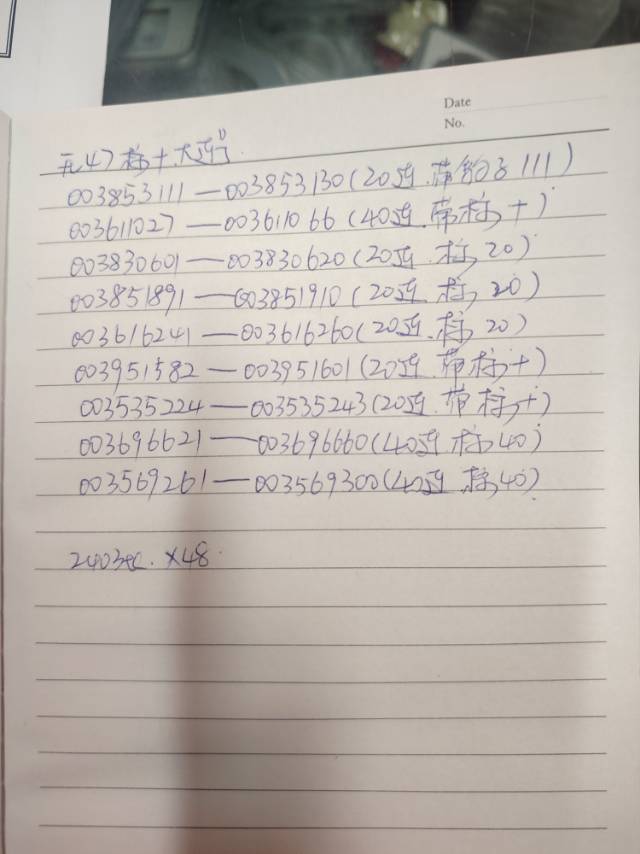 Date
No.
无47标十大连号
003853111—003853130(20连.带豹子111)
003611027—003611066(40连.带标十)
003830601—003830620(20连.标20)
003851891—003851910(20连.标20)
003616241—003616260(20连.标20)
003951582—003951601(20连.带标十)
003535224—003535243(20连.带标十)
003696621—003696660(40连.标40)
003569261—003569300(40连.标40)
×48